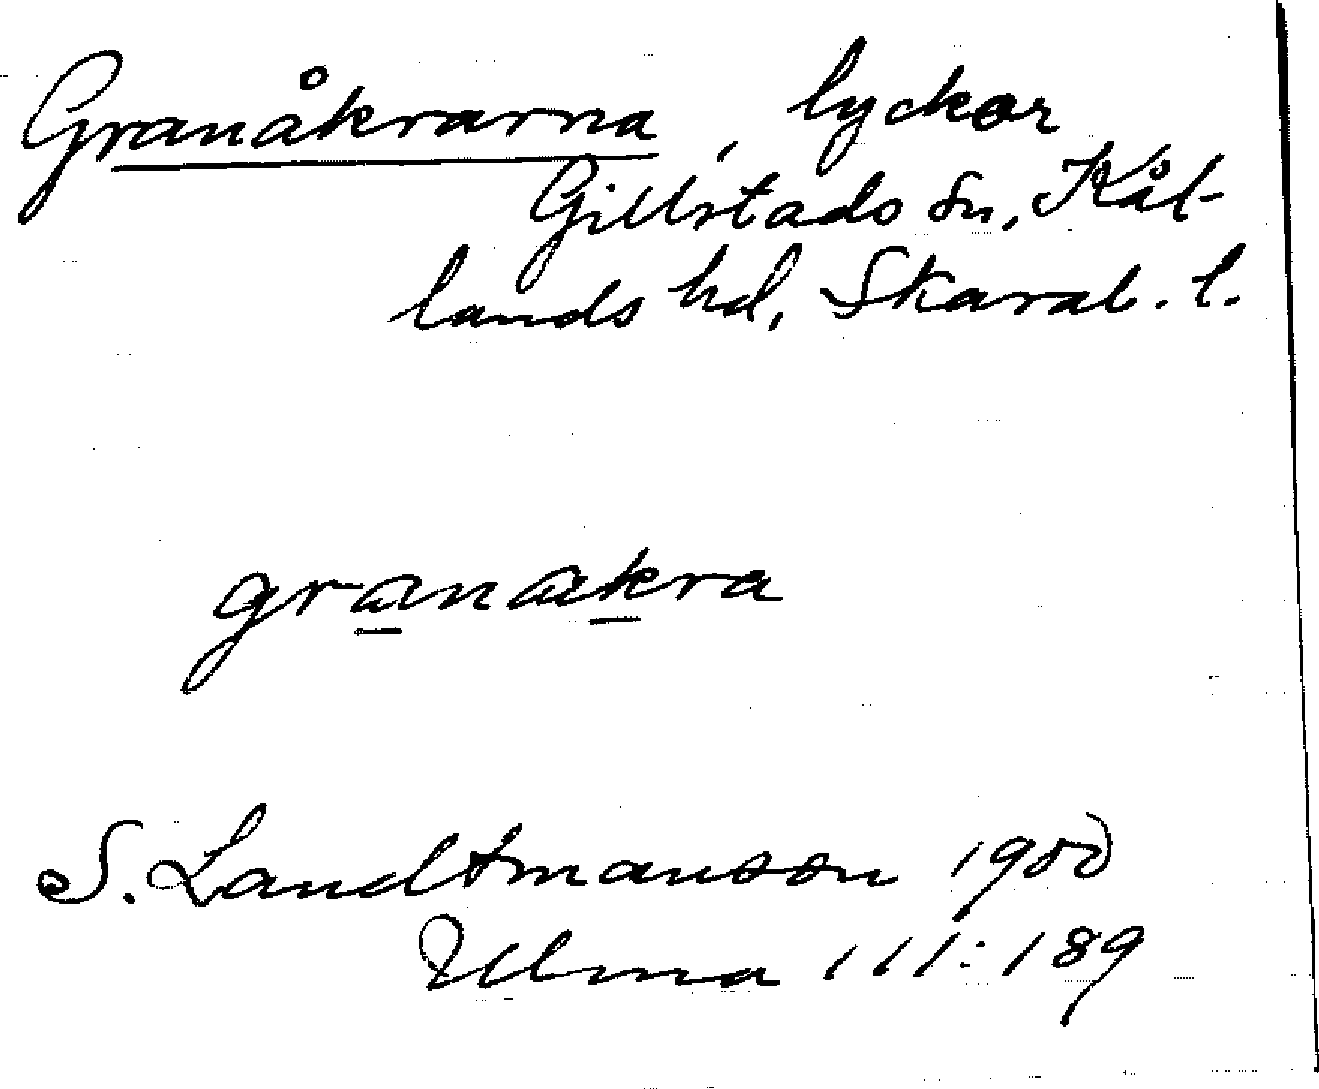 Granåkrarna, lyckor
Gillstads sn, Kål-
lands hd, Skarab. l.
granakra
S. Landtmanson 1900
Ulma 111:189